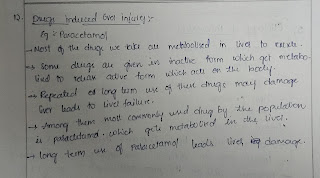 12. Drugs induced liver injury :-
Eg :- Paracetamol
→ Most of the drugs we take are metabolised in liver to
→ Some drugs are given in inactive form which get metabo-
lised to release active form which acts on the body.
→ Repeated or long term use of these drugs may damage
liver leads to liver failure.
→ Among them most commonly used drug by the population
is paracetamol. which gets metabolised in the liver.
→ Long term use of Paracetamol leads liver damage.